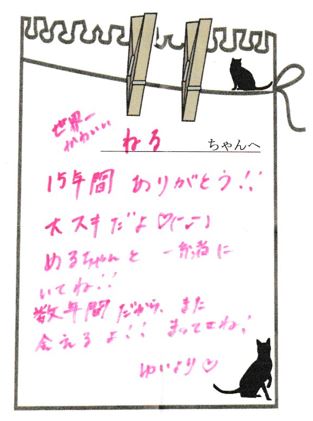 世界一
かわいい
ねろ ちゃんへ
15年間 ありがとう!!
大スキだよ♡(-_-)
めるちゃんと 一緒に
いてね!!
数年間だから、また
会えるよ!! まっててね!
ゆいより♡